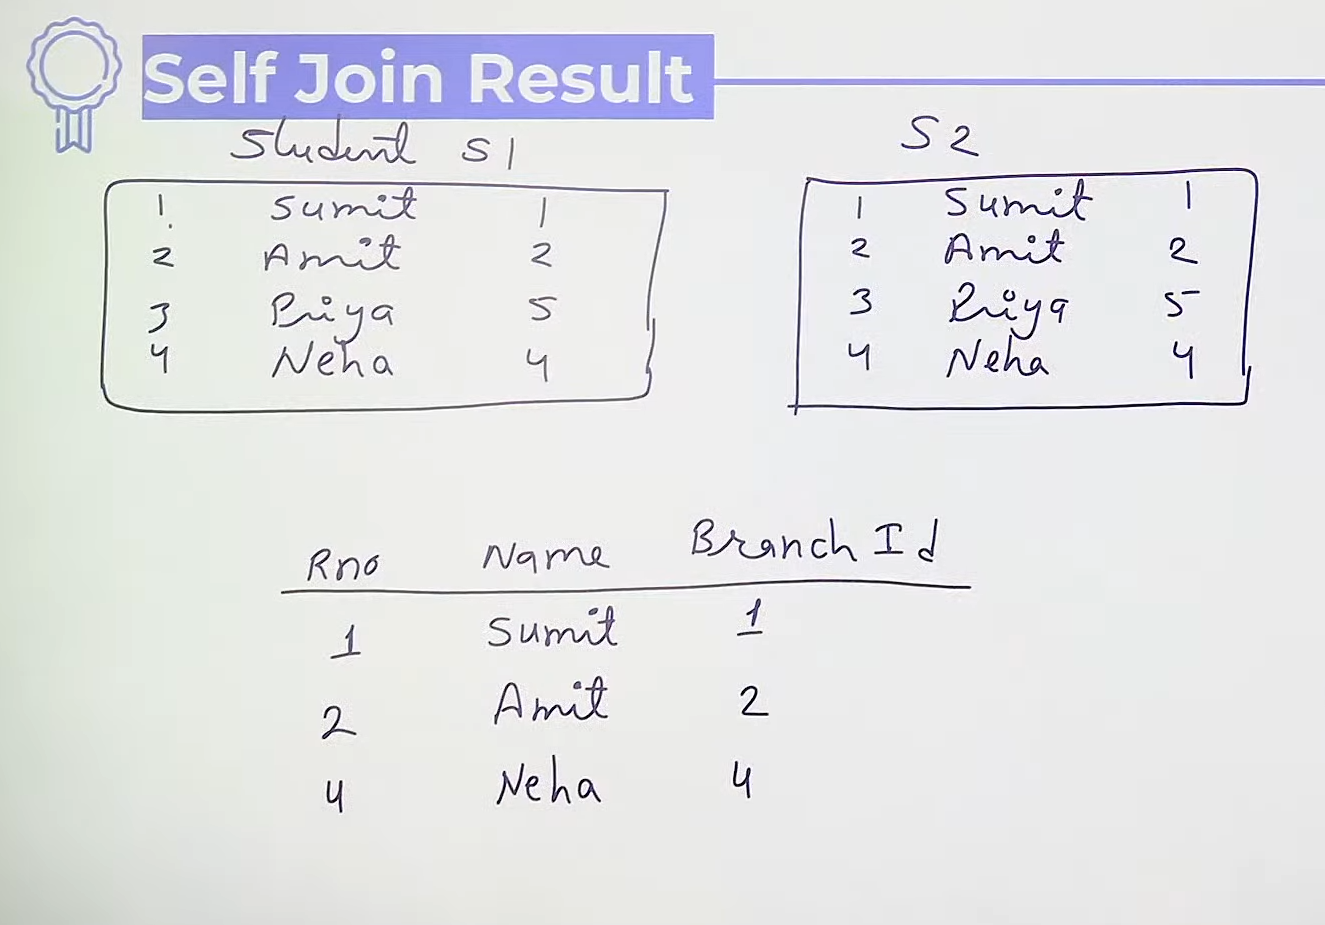 Self Join Result
Student S1
1 Sumit 1
2 Amit 2
3 Priya 5
4 Neha 4
S2
1 Sumit 1
2 Amit 2
3 Priya 5
4 Neha 4
Rno Name Branch Id
1 Sumit 1
2 Amit 2
4 Neha 4